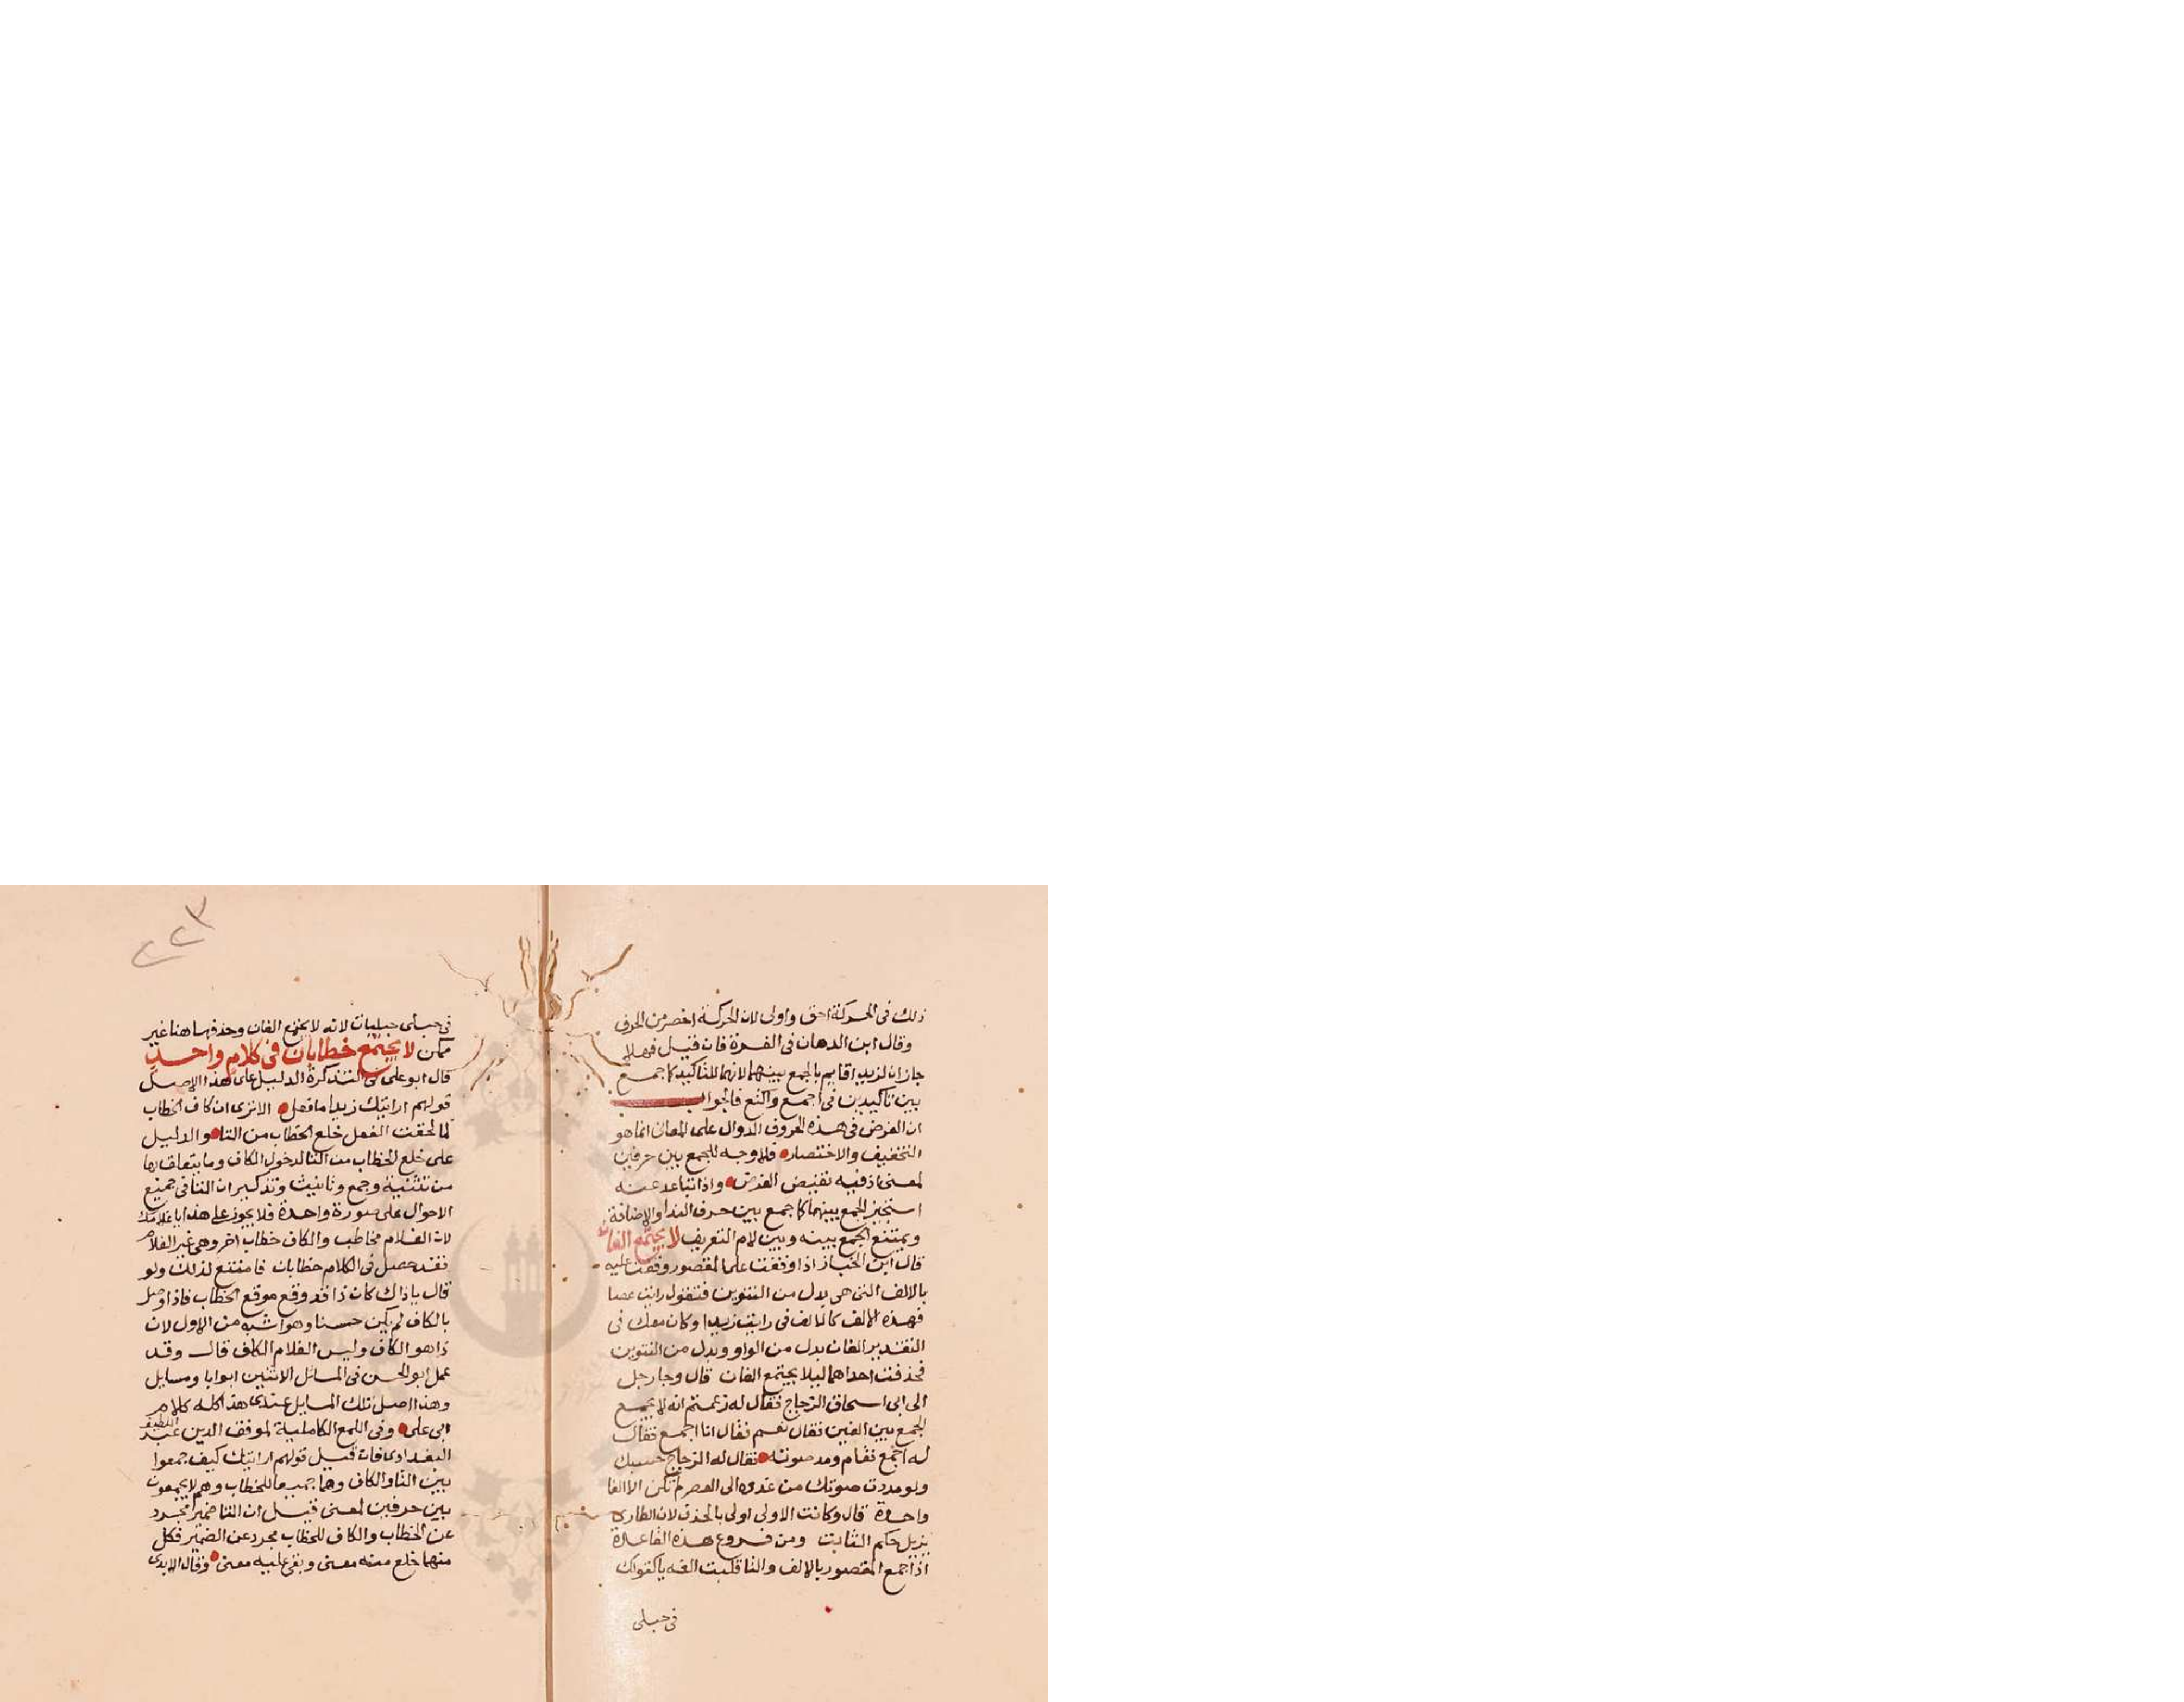 ذلك في الحركة احق واولى لان الحركة اخصر من الحرف
وقال ابن الدهان في الغرة فان قيل فهلا
جاز ان لزيدا قايم بالجمع بينهما لانهما للتاكيد كما جمع
بين تاكيدين في اجمع واكتع فالجواب
ان الغرض في هذه الحروف الدوال على المعاني انما هو
التخفيف والاختصار فلا وجه للجمع بين حرفين
لمعنى اذ فيه نقيض الغرض واذا تباعد عنه
استجيز الجمع بينهما كما جمع بين حرف الندا والاضافة
ويمتنع الجمع بينه وبين لام التعريف لا يجتمع الفان
قال ابن الخباز اذا وقفت على المقصور وقفت عليه
بالالف التي هي بدل من التنوين فتقول رايت عصا
فهذه الالف كالالف في رايت زيدا وكان معك في
التقدير الفان بدل من الواو وبدل من التنوين
فحذفت احداهما ليلا يجتمع الفان قال وجا رجل
الى ابي اسحاق الزجاج فقال له زعمتم انه لا
الجمع بين الفين فقال نعم فقال انا اجمع فقال
له اجمع فقام ومد صوته فقال له الزجاج حسبك
ولو مددت صوتك من غدوه الى العصر لم تكن الا الفا
واحدة قال وكانت الاولى اولى بالحذف لان الطاري
يزيل حكم الثابت ومن فروع هذه القاعدة
اذا جمع المقصور بالالف والتا قلبت الفه يا كقولك
في حبلى
٢٢٣
في حبلى حبليات لانه لا يجتمع الفان وحذفها هنا غير
ممكن لا يجتمع خطابان في كلام واحد
قال ابو علي في التذكرة الدليل على هذا الاصل
قولهم ارايتك زيدا ما فعل الا ترى ان كاف الخطاب
لما لحقت الفعل خلع الخطاب من التا والدليل
على خلع الخطاب من التا لدخول الكاف وما يتعاقب بها
من تثنية وجمع وتانيث وتذكير ان التا في جميع
الاحوال على صورة واحدة فلا يجوز على هذا يا غلامك
لان الغلام مخاطب والكاف خطاب اخر وهي غير الغلام
فقد حصل في الكلام خطابان فامتنع لذلك ولو
قال يا ذاك كان ذا قد وقع موقع الخطاب فاذا وصل
بالكاف لم يكن حسنا وهو اشبه من الاول لان
ذا هو الكاف وليس الغلام الكاف قال وقد
عمل ابو الحسن في المسائل الاثنين ابوابا ومسايل
وهذا اصل تلك المسايل عندى هذا كله كلام
ابي علي وفي اللمع الكاملية لموفق الدين عبد اللطيف
البغدادى فان قيل قولهم ارايتك كيف جمعوا
بين التا والكاف وهما جميعا للخطاب وهم لا يجمعون
بين حرفين لمعنى قيل ان التا ضمير مجرد
عن الخطاب والكاف للخطاب مجرد عن الضمير فكل
منهما خلع منه معنى وبقي عليه معنى وقال الابدى